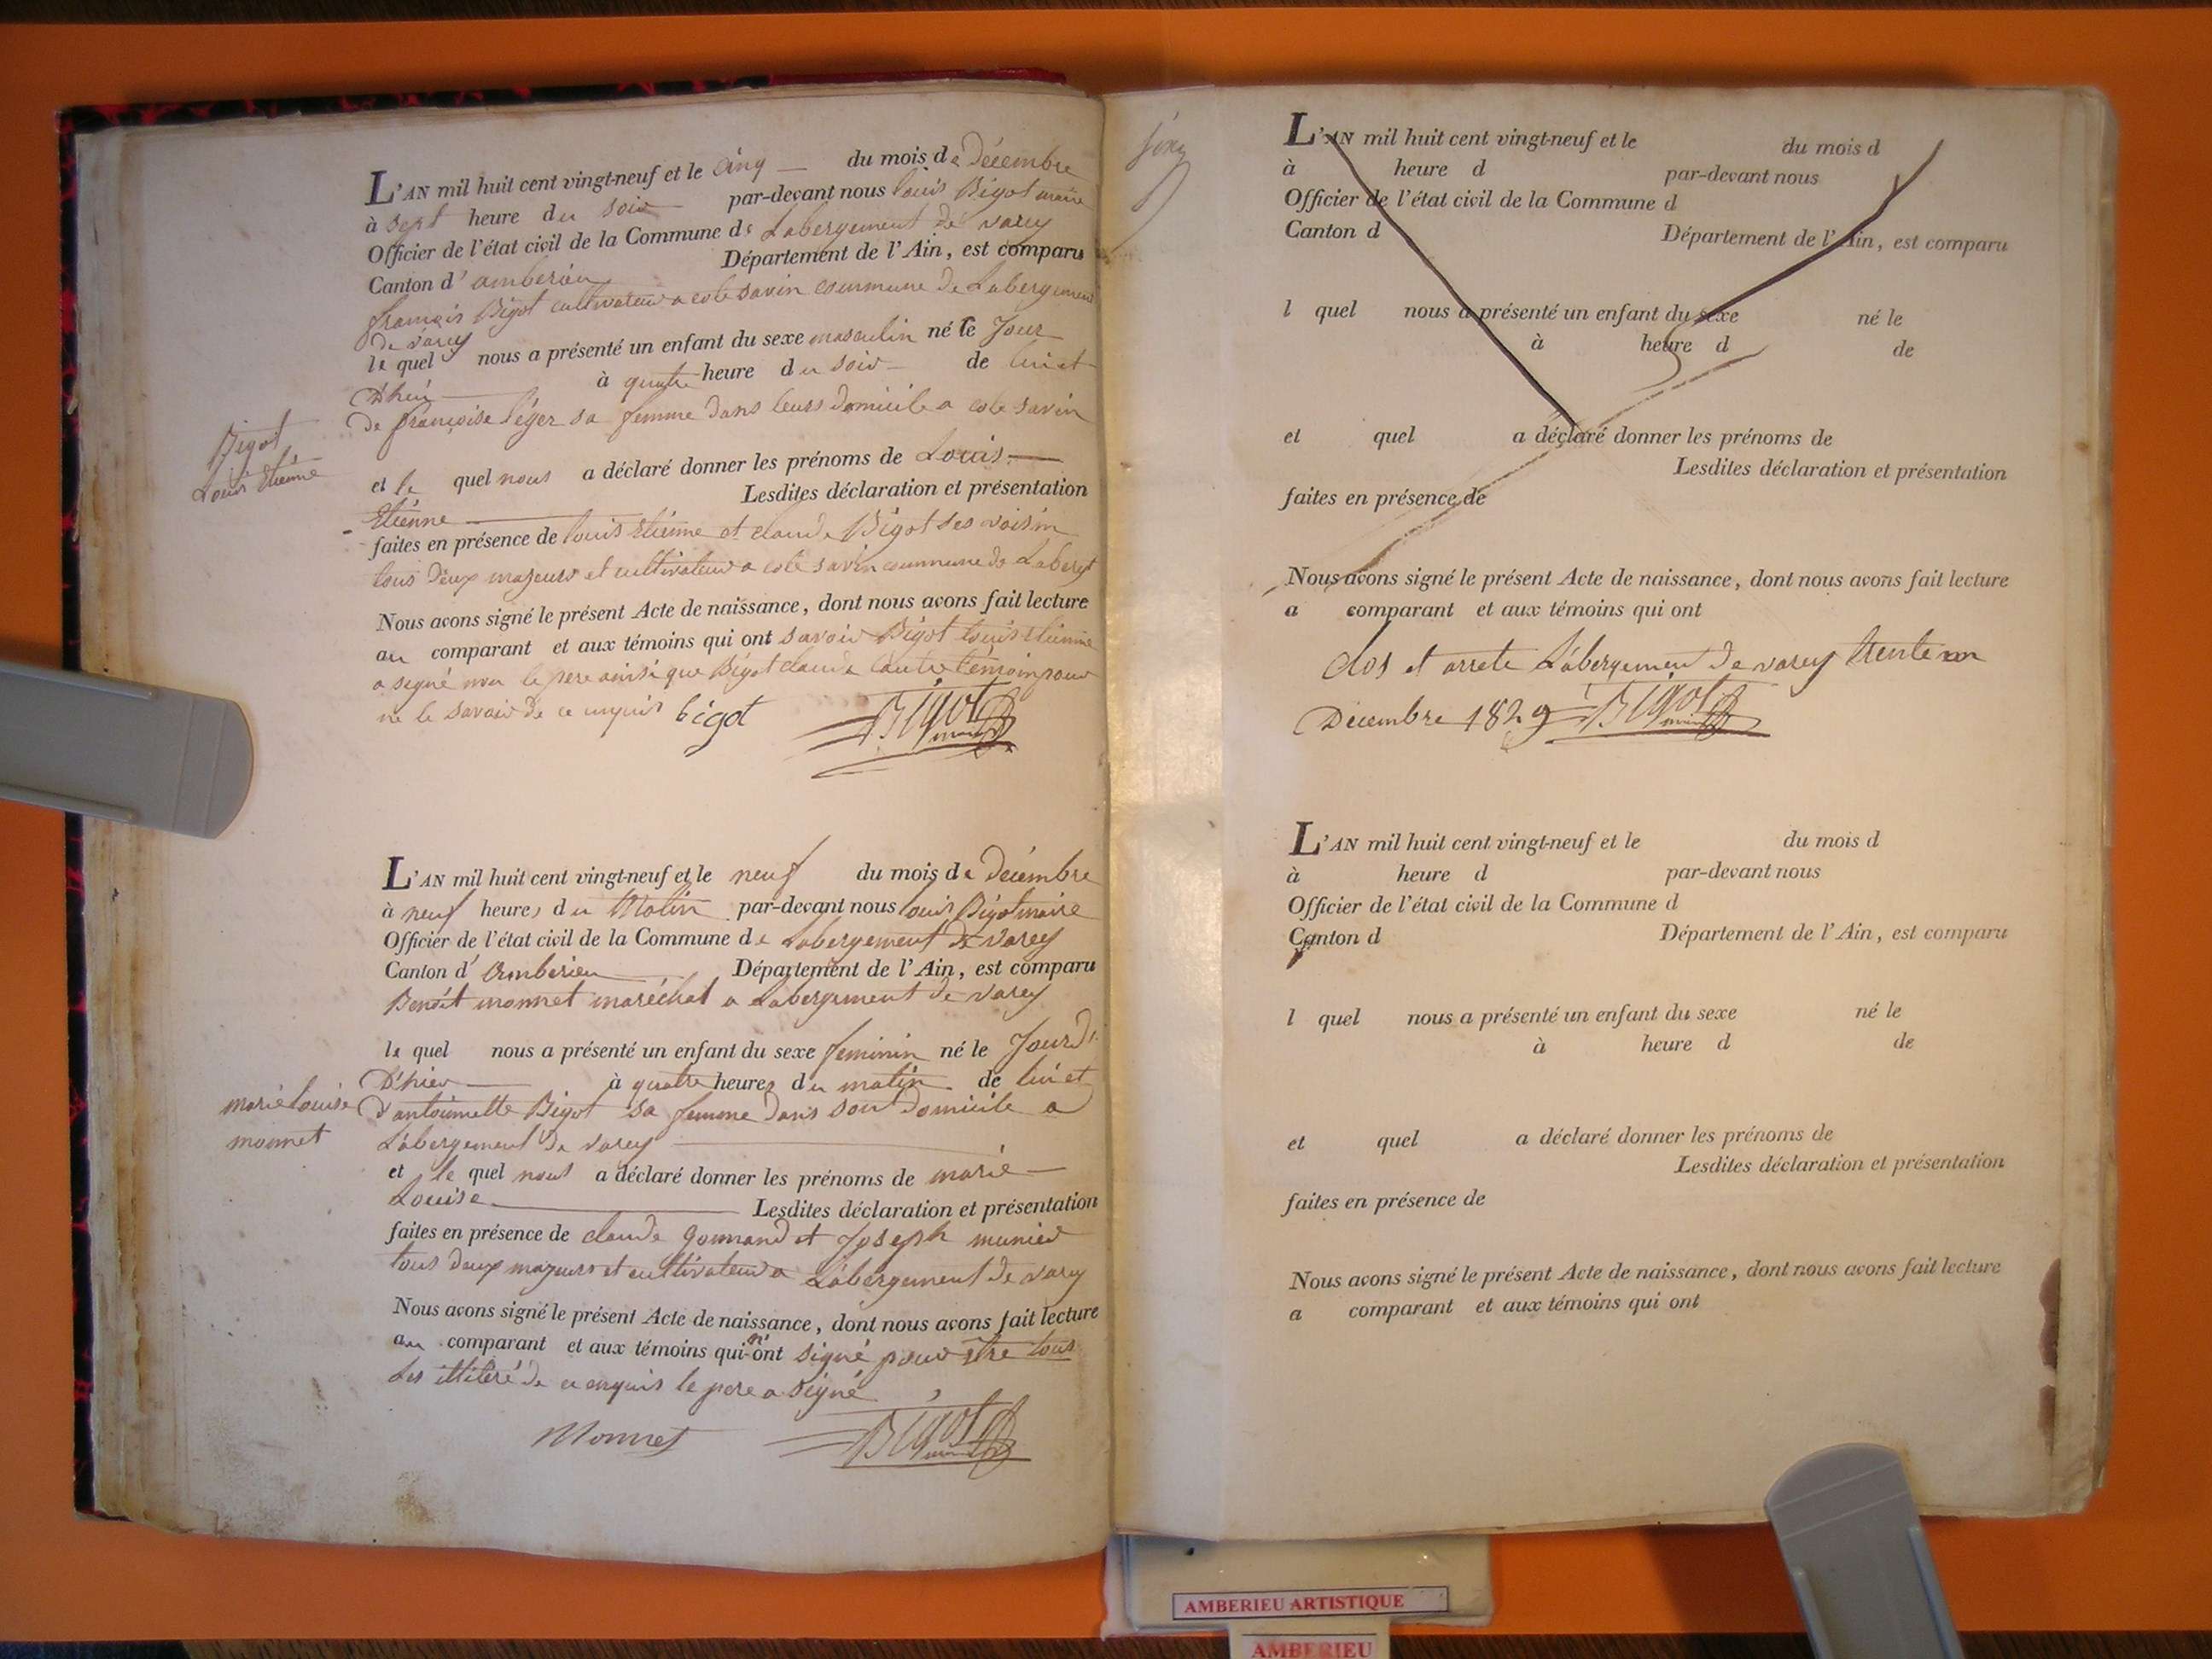 L'AN mil huit cent vingt-neuf et le cinq du mois de Décembre
à sept heure du soir par-devant nous louis Bigot maire
Officier de l'état civil de la Commune de Labergement de varey
Canton d'amberieu Département de l'Ain, est comparu
françois Bigot cultivateur a cote savin commune de Labergement
de varey
le quel nous a présenté un enfant du sexe masculin né le Jour
D'hier à quatre heure du soir de lui et
De françoise léger sa femme dans leurs domicile a cote savin
Bigot
Louis Etienne
et le quel nous a déclaré donner les prénoms de Louis
Etienne Lesdites déclaration et présentation
faites en présence de louis Etienne et claude Bigot ses voisin
tous Deux majeurs et cultivateur a cote savin commune de Laberg
Nous avons signé le présent Acte de naissance, dont nous avons fait lecture
au comparant et aux témoins qui ont savoir Bigot louis Etienne
a signé non le pere ainsi que Bigot claude l'autre témoin pour
ne le savoir de ce enquis bigot Bigot maire
L'AN mil huit cent vingt-neuf et le neuf du mois de Décembre
à neuf heures du Matin par-devant nous louis Bigot maire
Officier de l'état civil de la Commune de Labergement de varey
Canton d'Amberieu Département de l'Ain, est comparu
Benoit monnet maréchal a Labergement de varey
le quel nous a présenté un enfant du sexe feminin né le Jour d
D'hier à quatre heures du matin de lui et
marie louise
monnet
d'antoinette Bigot sa femme dans son domicile a
Labergement de varey
et le quel nous a déclaré donner les prénoms de marie
Louise Lesdites déclaration et présentation
faites en présence de claude gonnand et Joseph munier
tous deux majeurs et cultivateur a Labergement de varey
Nous avons signé le présent Acte de naissance, dont nous avons fait lecture
au comparant et aux témoins qui n'ont signé pour être tous
les illitéré de ce enquis le pere a signé
Monnet Bigot maire
L'AN mil huit cent vingt-neuf et le du mois d
à heure d par-devant nous
Officier de l'état civil de la Commune d
Canton d Département de l'Ain, est comparu
l quel nous a présenté un enfant du sexe né le
à heure d de
et quel a déclaré donner les prénoms de
Lesdites déclaration et présentation
faites en présence de
Nous avons signé le présent Acte de naissance, dont nous avons fait lecture
a comparant et aux témoins qui ont
Clos et arrete Labergement de varey trente un
Décembre 1829 Bigot maire
L'AN mil huit cent vingt-neuf et le du mois d
à heure d par-devant nous
Officier de l'état civil de la Commune d
Canton d Département de l'Ain, est comparu
l quel nous a présenté un enfant du sexe né le
à heure d de
et quel a déclaré donner les prénoms de
Lesdites déclaration et présentation
faites en présence de
Nous avons signé le présent Acte de naissance, dont nous avons fait lecture
a comparant et aux témoins qui ont
AMBERIEU ARTISTIQUE
AMBERIEU